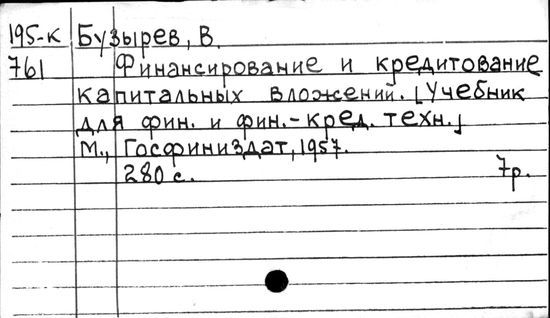 195-к Бузырев, В.
761 Финансирование и кредитование
капитальных вложений. [Учебник
для фин. и фин.-кред. техн.]
М., Госфиниздат, 1957.
280 с. 7р.